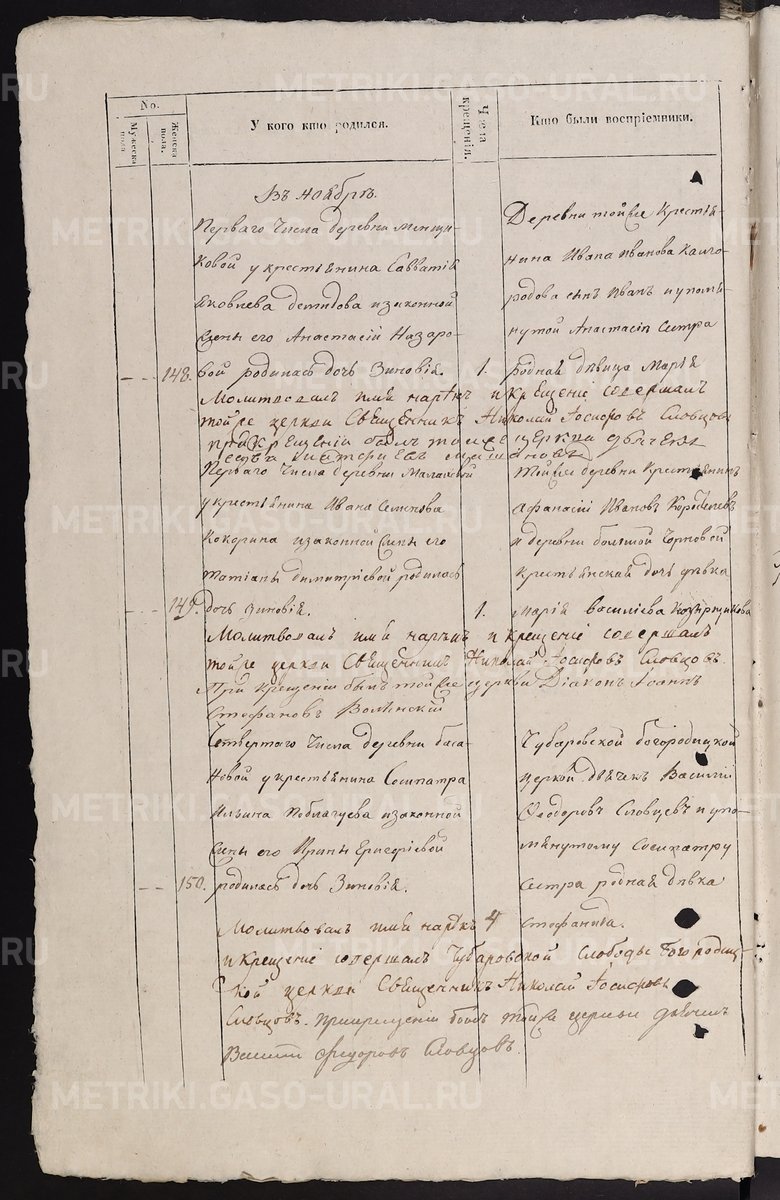 No.
Мужеска пола.
Женска пола.
У кого кто родился.
Числа крещенія.
Кто были воспріемники.
Въ ноябрѣ.
Перваго числа деревни Менщи-
ковой у крестьянина Савватія
Яковлева Демидова изаконной
жены его Анастасіи Назаро-
148. вой родилась дочь Зиновія.
1.
Деревни тойже крестья-
нина Ивана Иванова Кайго-
родова сынъ Иванъ и упомя-
нутой Анастасіи сестра
родная дѣвица Марія
Молитвовалъ имя нарѣкъ и крещеніе совершалъ
тойже церкви Священникъ Николай Іосифовъ Словцовъ
при крещеніи былъ тойже церкви
Перваго числа деревни Малаховой
у крестьянина Ивана Семенова
Кокорина изаконной жены его
Татіаны Димитріевой родилась
149. дочь Зиновія.
1.
Тойже деревни крестьянинъ
Афанасій Ивановъ
и деревни большой Черновой
крестьянская дочь дѣвка
Марія Василіева
Молитвовалъ имя нарѣкъ и крещеніе совершалъ
тойже церкви Священникъ Николай Іосифовъ Словцовъ.
При крещеніи былъ тойже церкви Діаконъ Іоаннъ
Стефановъ Волынскій
Четвертаго числа деревни Баса-
новой у крестьянина Сосипатра
Ильина изаконной
жены его Ирины Ерофѣевой
150. родилась дочь Зиновія.
4
Чубаровской богородицкой
церкви дьячекъ Василій
Ѳеодоровъ Словцевъ и упо-
мянутому Сосипатру
сестра родная дѣвка
Стефанида.
Молитвовалъ имя нарѣкъ
и крещеніе совершалъ Чубаровской слободы Богородиц-
кой церкви Священникъ Николай Іосифовъ
Словцовъ. При крещеніи былъ тойже церкви дьячекъ
Василій Федоровъ Словцовъ.
METRIKI.GASO-URAL.RU